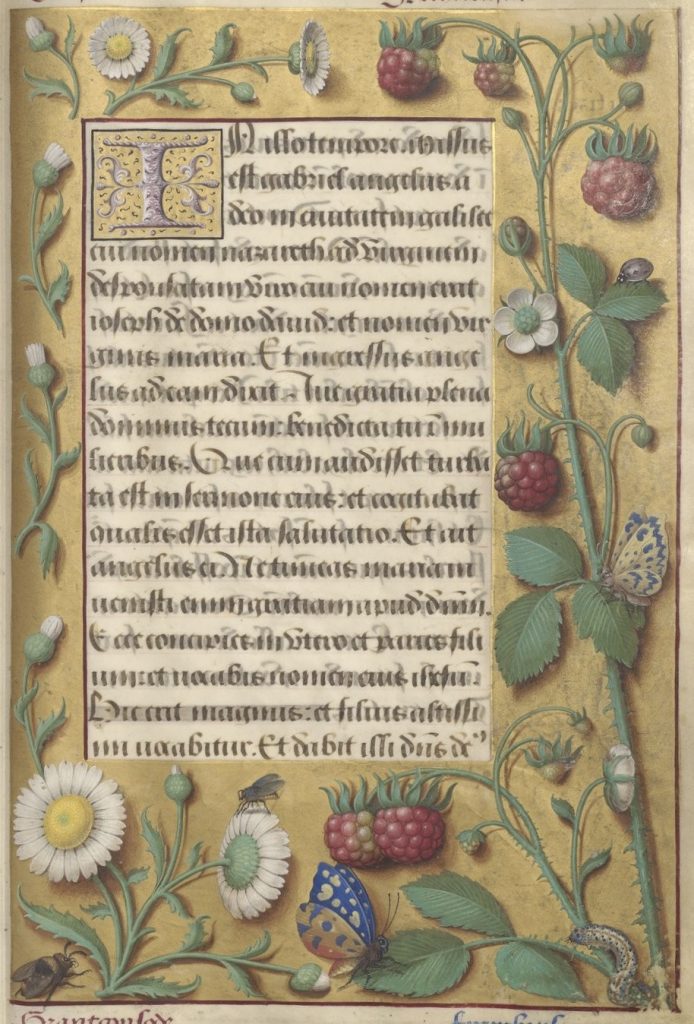 IN illo tempore. Missus
est gabriel angelus a
deo in ciuitatem galilee
cui nomen nazareth ad virginem
desponsatam viro cui nomen erat
ioseph de domo dauid: et nomen vir
ginis maria. Et ingressus ange
lus ad eam dixit. Aue gratia plena
dominus tecum: benedicta tu in mu
lieribus. Que cum audisset turba
ta est in sermone eius: et cogitabat
qualis esset ista salutatio. Et ait
angelus ei. Ne timeas maria
inuenisti enim gratiam apud dnm.
Ecce concipies in vtero et paries fili
um: et uocabis nomen eius ihesum.
Hic erit magnus: et filius altissi
mi uocabitur. Et dabit illi dns de